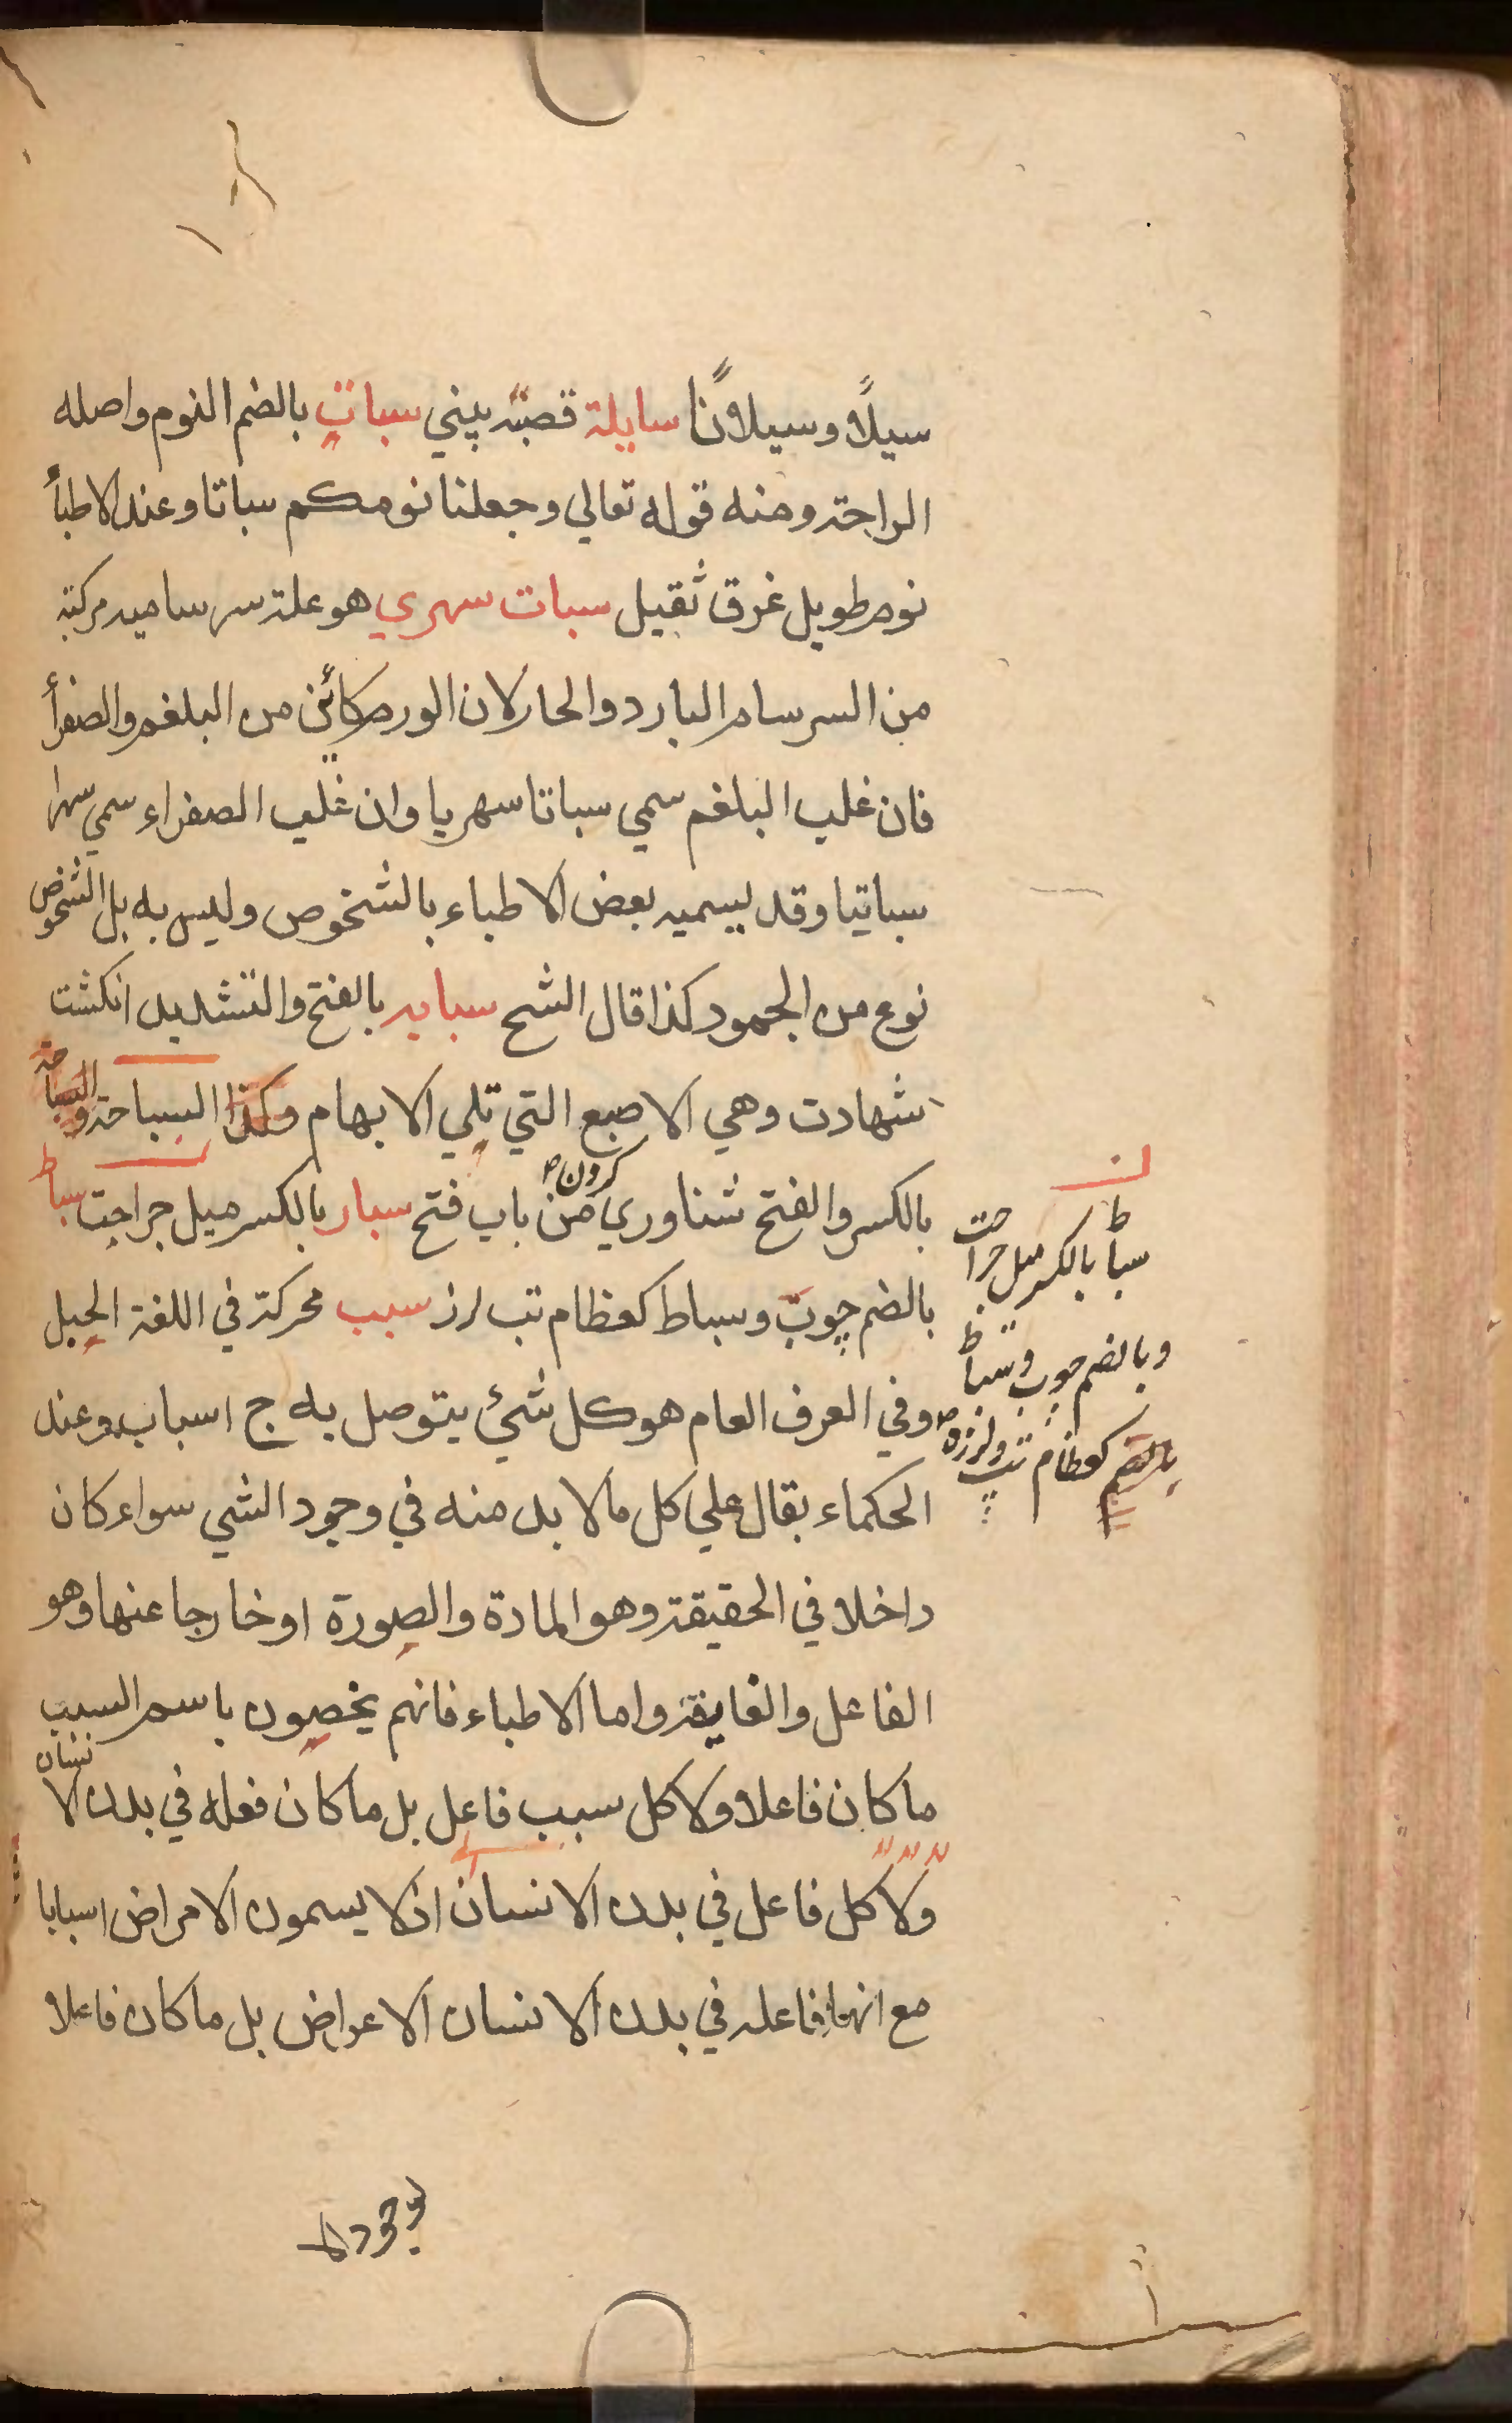 سيلًا وسيلانًا سايلة قصبۀ بيني سبات بالضم النوم واصله
الراحة ومنه قوله تعالي وجعلنا نومكم سباتا وعند الاطبأ
نوم طويل غرق ثقيل سبات سهري هو علة سرساميه مركبة
من السرسام البارد والحار لان الورم كائن من البلغم والصفرأ
فان غلب البلغم سمي سباتا سهريا وان غلب الصفراء سمي سهرا
سباتيا وقد يسميه بعض الاطباء بالشخوص وليس به بل الشخوص
نوع من الجمود كذا قال الشح سبابه بالفتح والتشديد انكشت
شهادت وهي الاصبع التي تلي الابهام وكذا السباحة و السباحة
بالكسر والفتح شناوري كرون من باب فتح سبار بالكسر ميل جراحت سباط
بالضم چوب وسباط كعظام تب لرز سبب محركة في اللغة الحبل
وفي العرف العام هو كل شئ يتوصل به ج اسباب وعند
الحكماء يقال علي كل ما لا بد منه في وجود الشي سواء كان
داخلا في الحقيقة وهو المادة والصورة او خارجا عنها وهو
الفاعل والغاية واما الاطباء فانهم يخصون باسم السبب
ما كان فاعلا ولا كل سبب فاعل بل ما كان فعله في بدن الانسان
ولا كل فاعل في بدن الانسان اذ لا يسمون الامراض اسبابا
مع انها فاعله في بدن الانسان الاعراض بل ما كان فاعلا
لوجود
سباط بالكسر ميل جراحت
وبالضم چوب وسباط
بالضم كعظام تب ولرزه